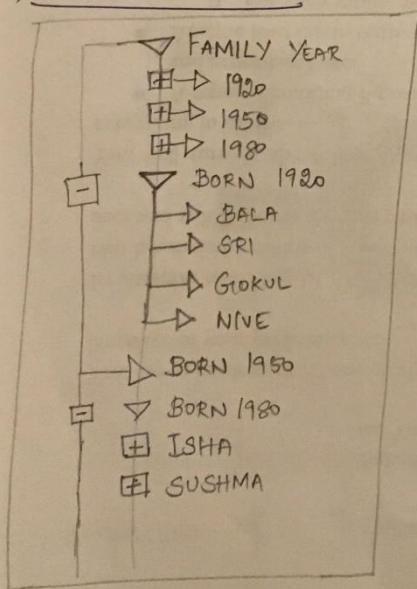 FAMILY YEAR
1920
1950
1980
BORN 1920
BALA
SRI
GOKUL
NIVE
BORN 1950
BORN 1980
ISHA
SUSHMA